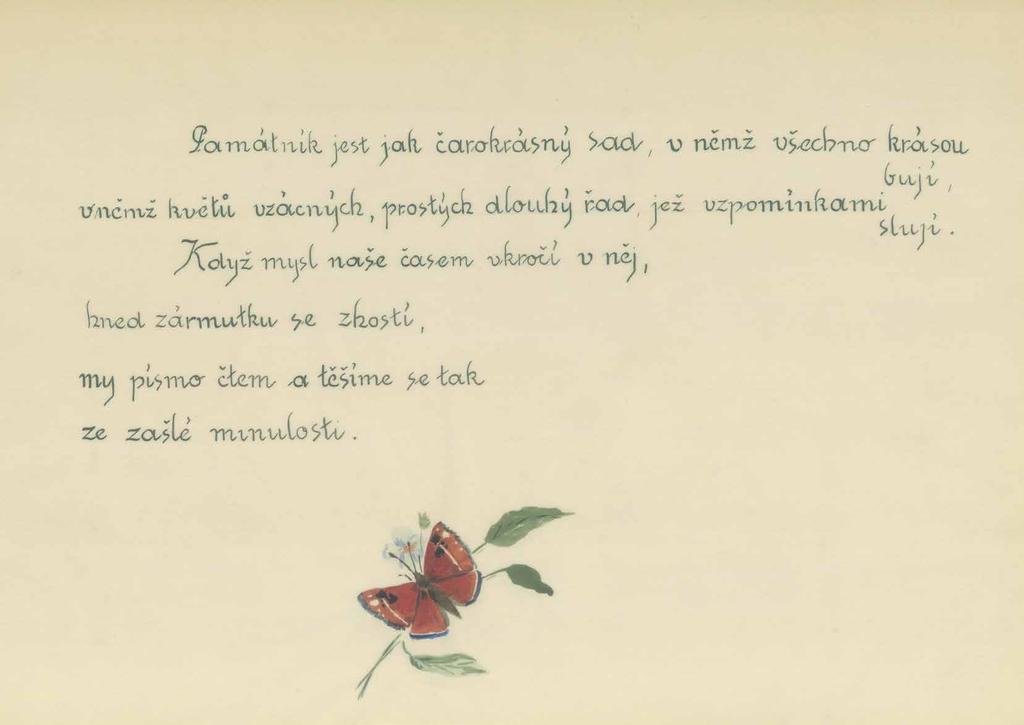 Památník jest jak čarokrásný sad, v němž všechno krásou
bují,
v němž květů vzácných, prostých dlouhý řad, jež vzpomínkami
slují.
Když mysl naše časem vkročí v něj,
hned zármutku se zhostí,
my písmo čtem a těšíme se tak
ze zašlé minulosti.